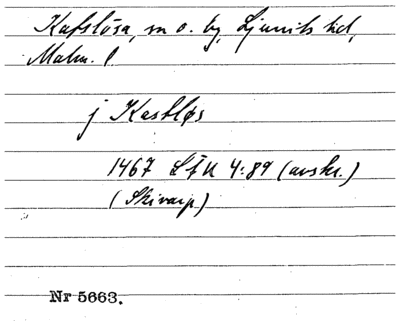 Kafslösa, sn o. by, Ljunits hd,
Malm. l
j Kastløs
1467 LÄU 4:89 (avskr.)
(Skivarp)
Nr 5663.